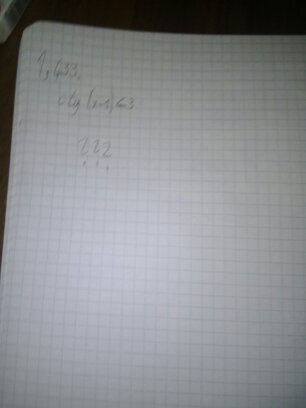 1,433.
ctg (x-1)<3
???